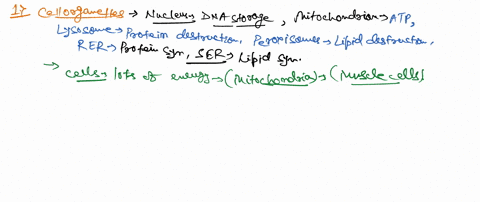 17 Cell organelles → Nucleus → DNA storage, Mitochondrion → ATP,
Lysosome → Protein destruction, Peroxisomes → Lipid destruction,
RER → Protein Syn, SER → Lipid Syn.
→ Cells → lots of energy → (Mitochondria) → (Muscle cells)